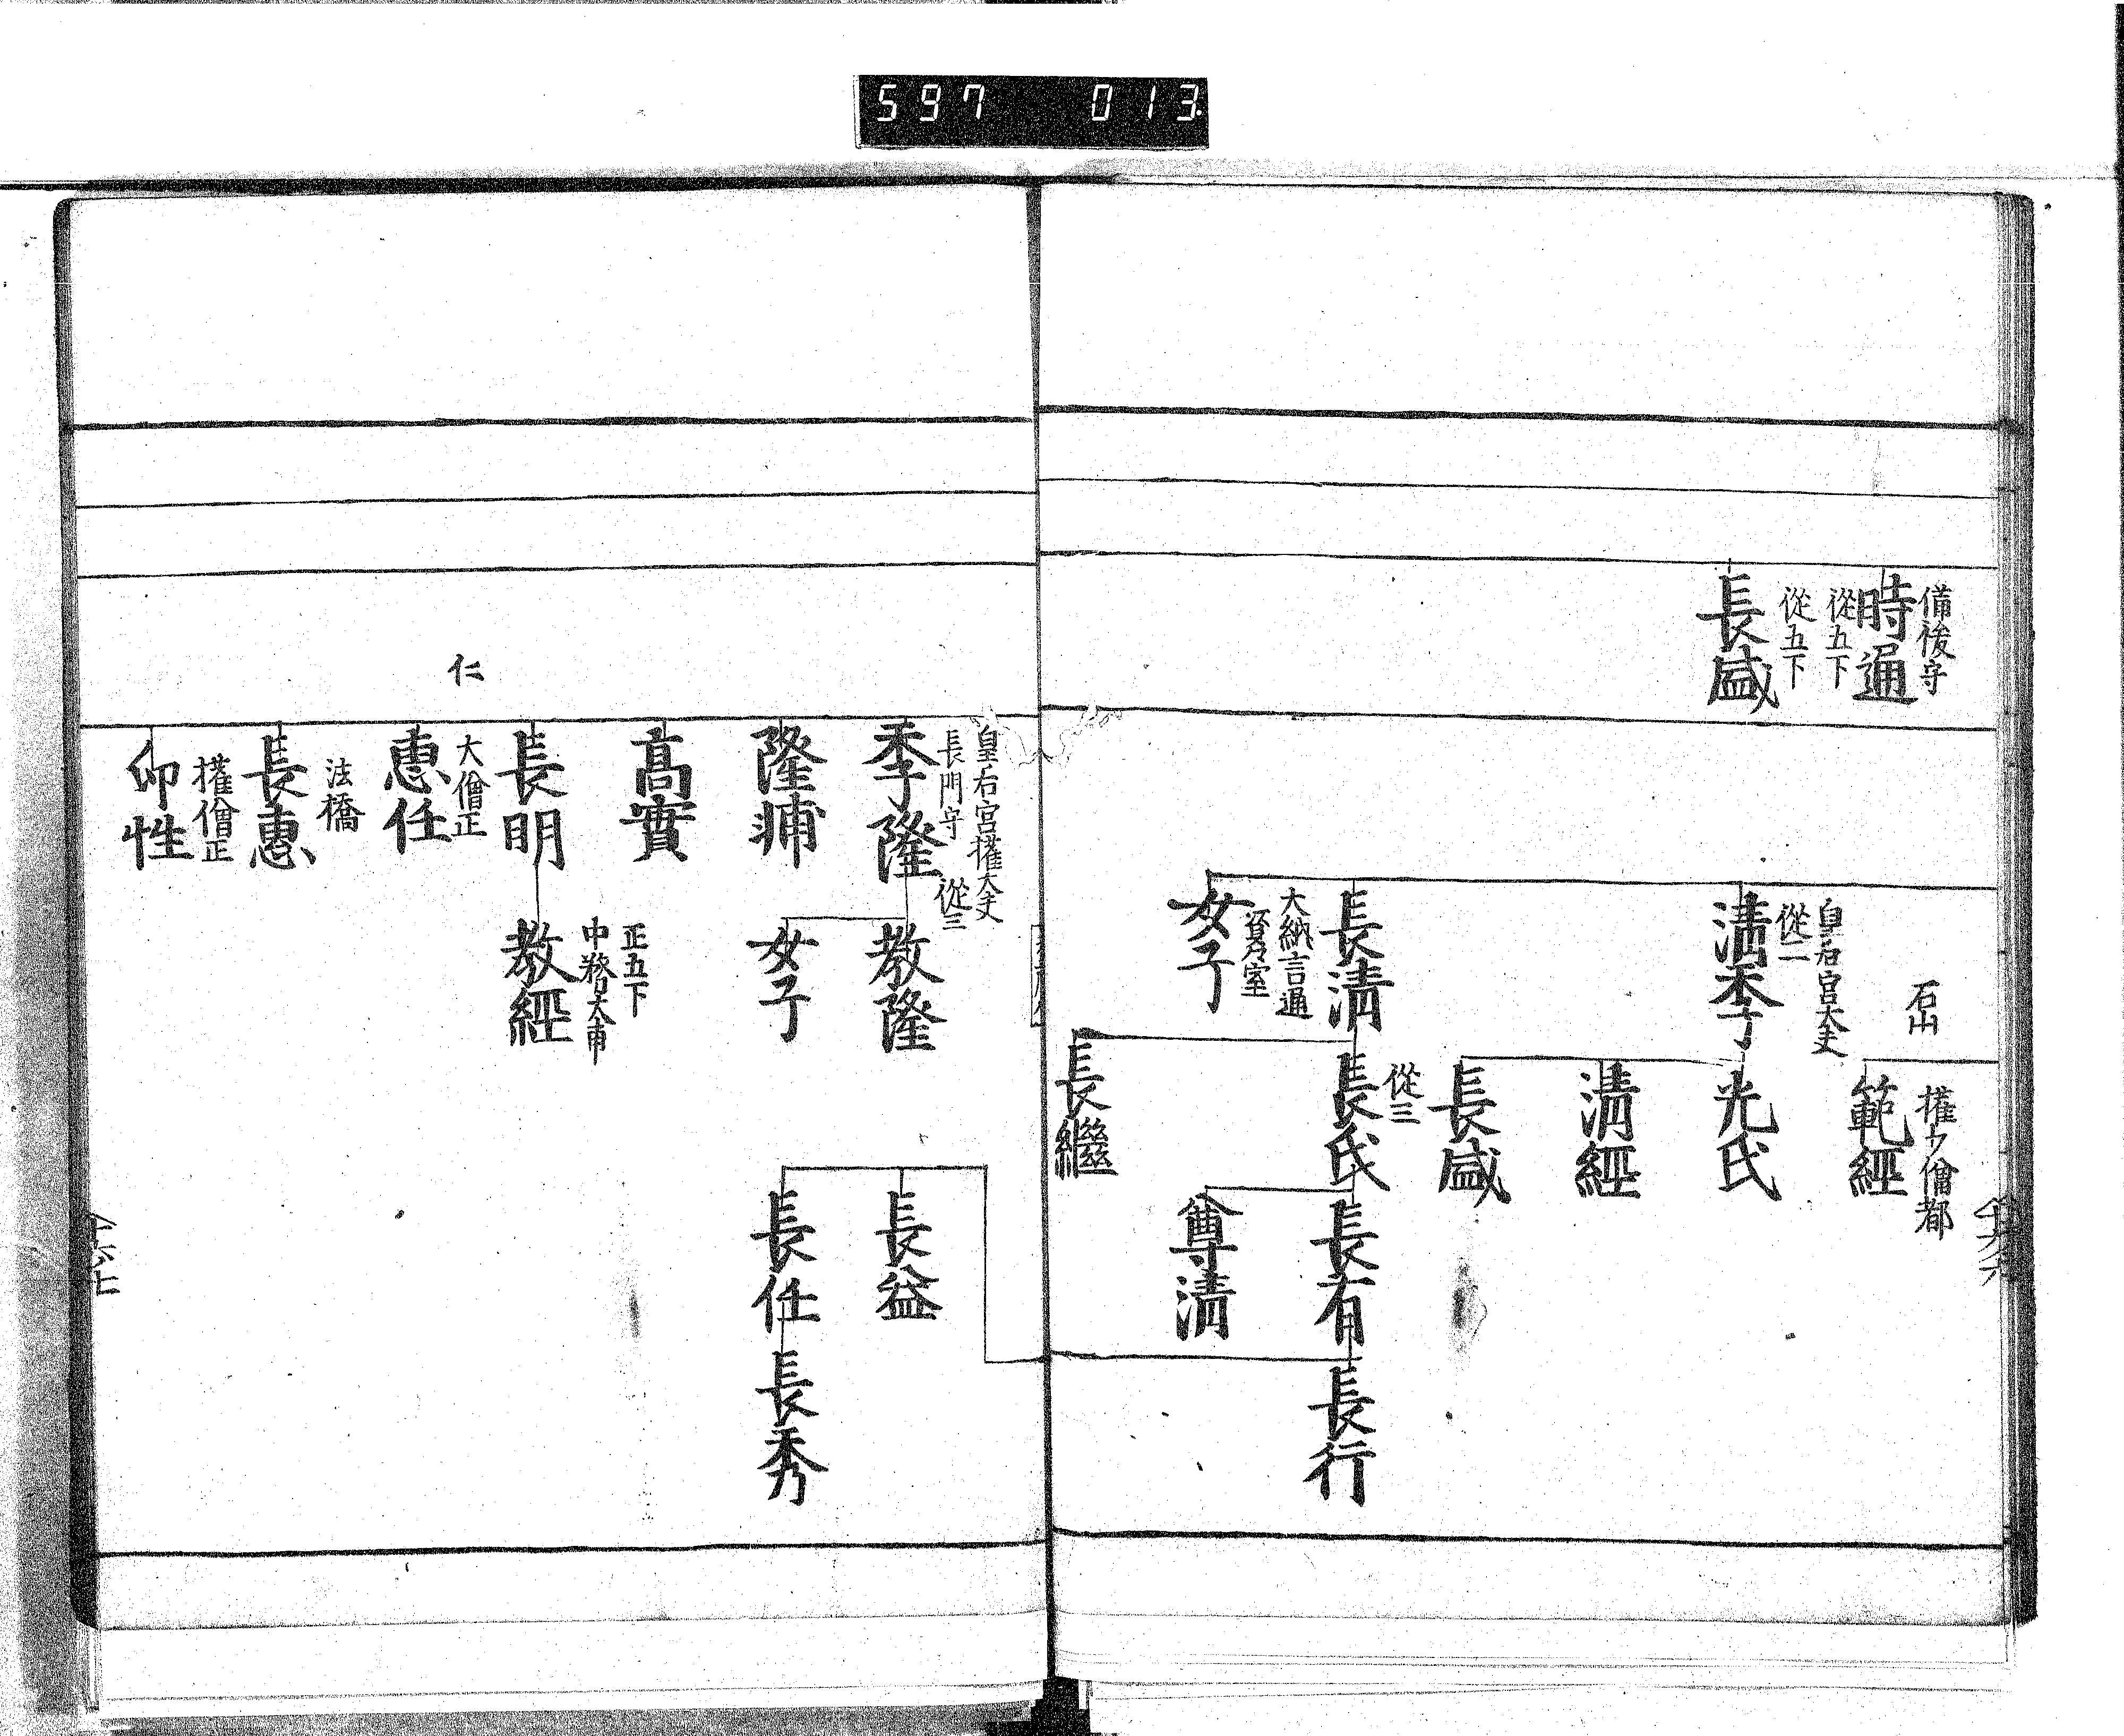 597 013
備後守
時通
從五下
從五下
長盛
石山
權少僧都
範經
皇后宮大夫
從二
清季
光氏
清經
長盛
長清
從三
長氏
長有
長行
大納言通
室
女子
尊清
長繼
皇后宮權大夫
長門守
從三
季隆
教隆
隆輔
女子
長益
長任
長秀
高實
長明
正五下
中務大甫
教經
仁
大僧正
惠任
法橋
長惠
權僧正
仰性